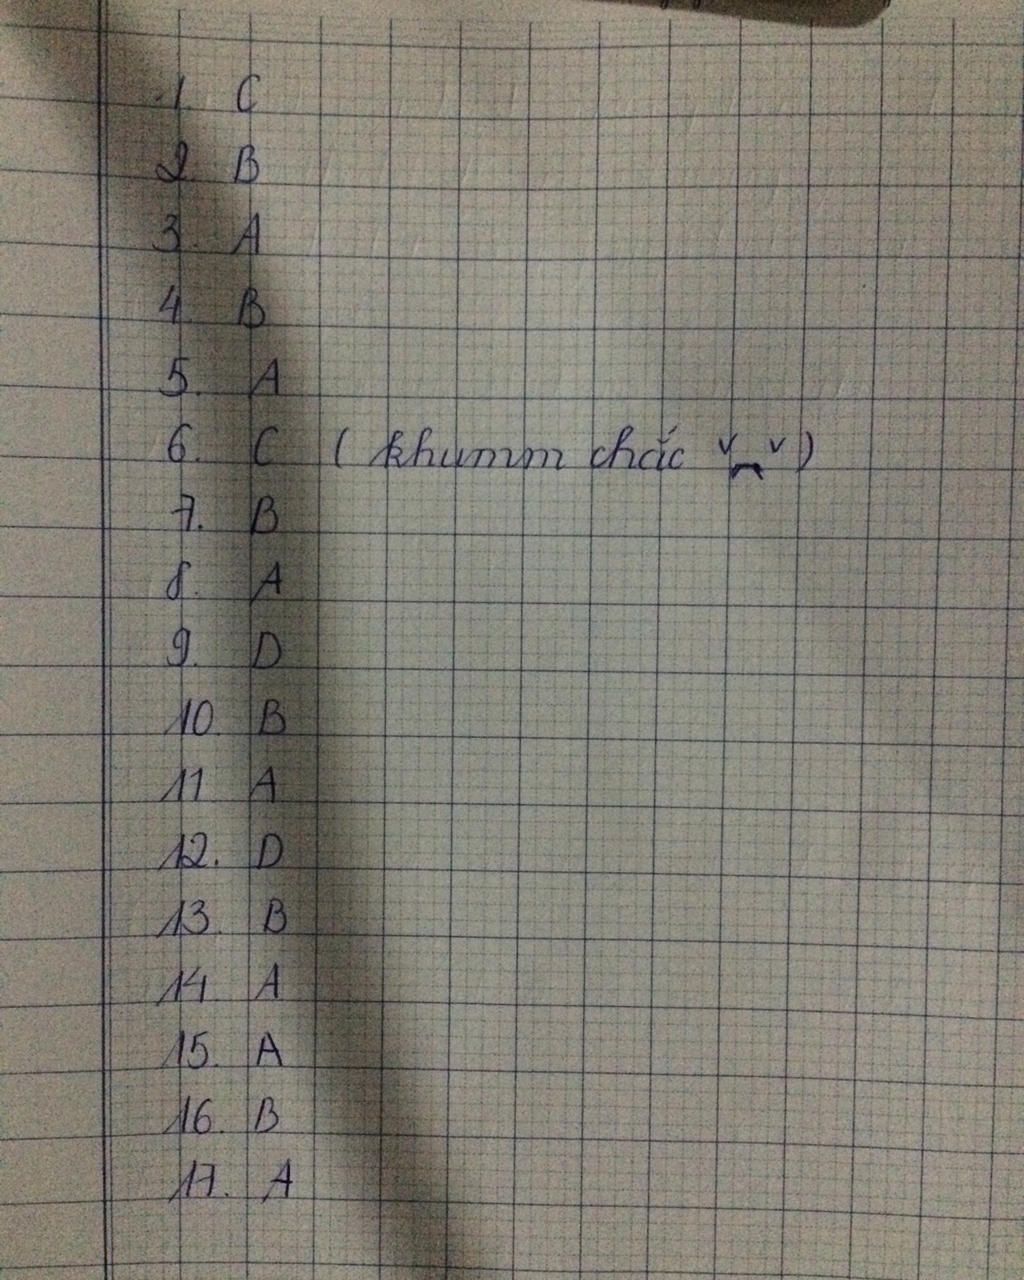 1. C
2. B
3. A
4. B
5. A
6. C ( khumm chắc ᵛ⌒ᵛ )
7. B
8. A
9. D
10. B
11 A
12. D
13. B
14 A
15. A
16. B
17. A